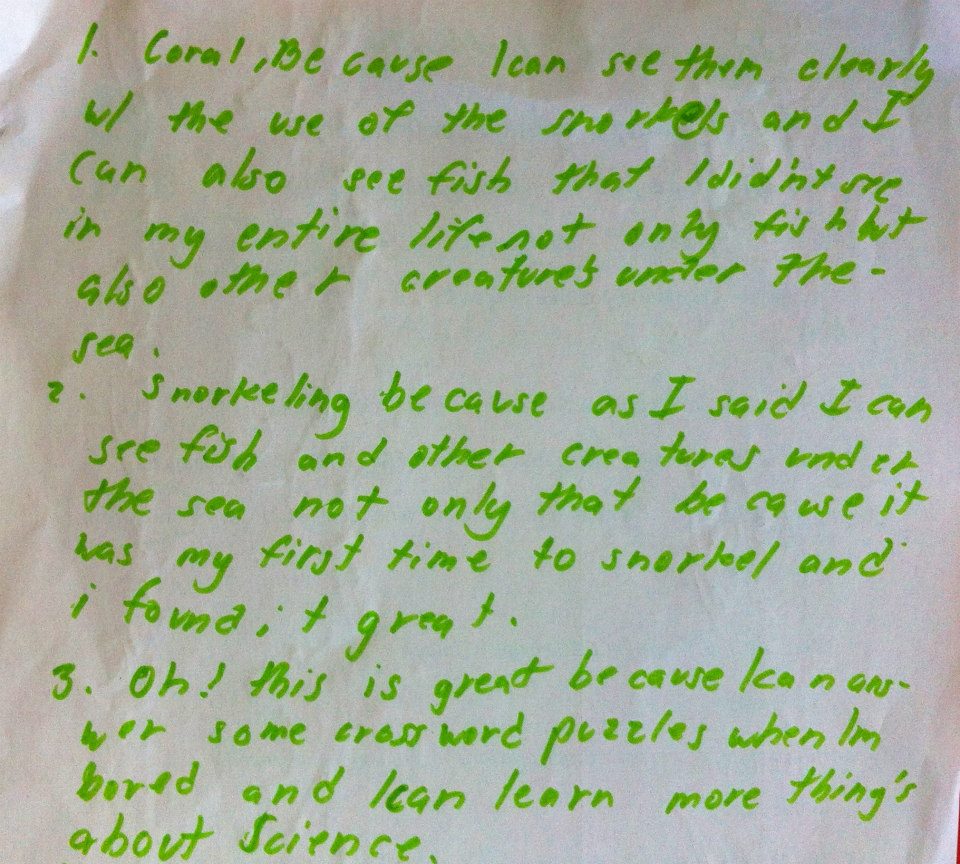 1. Coral, Because I can see them clearly
w/ the use of the snorkels and I
can also see fish that I did'nt see
in my entire life not only fish but
also other creature's under the-
sea.
2. Snorkeling because as I said I can
see fish and other creatures under
the sea not only that because it
was my first time to snorkel and
i found it great.
3. Oh! this is great because I can ans-
wer some crossword puzzles when Im
bored and I can learn more thing's
about Science.